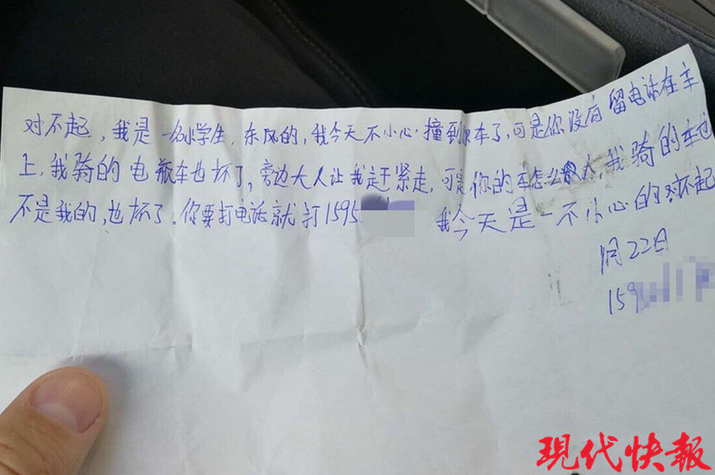 对不起，我是一名小学生，东风的，我今天不小心撞到你车了，可是你没有留电话在车
上，我骑的电瓶车也坏了，旁边大人让我赶紧走，可是你的车怎么办，我骑的车也
不是我的，也坏了，你要打电话就打1595 我今天是一不小心的对不起
月22日
159
现代快报